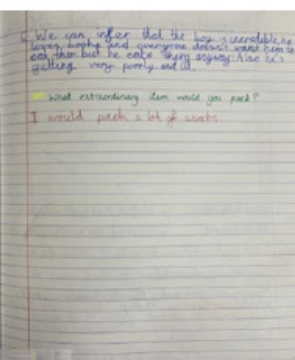 We can infer that the boy is incredible he
loves books and everyone doesn't want him to
eat them but he eats them anyway. Also he's
getting very poorly and ill.
What extraordinary item would you pack?
I would pack a lot of snacks.